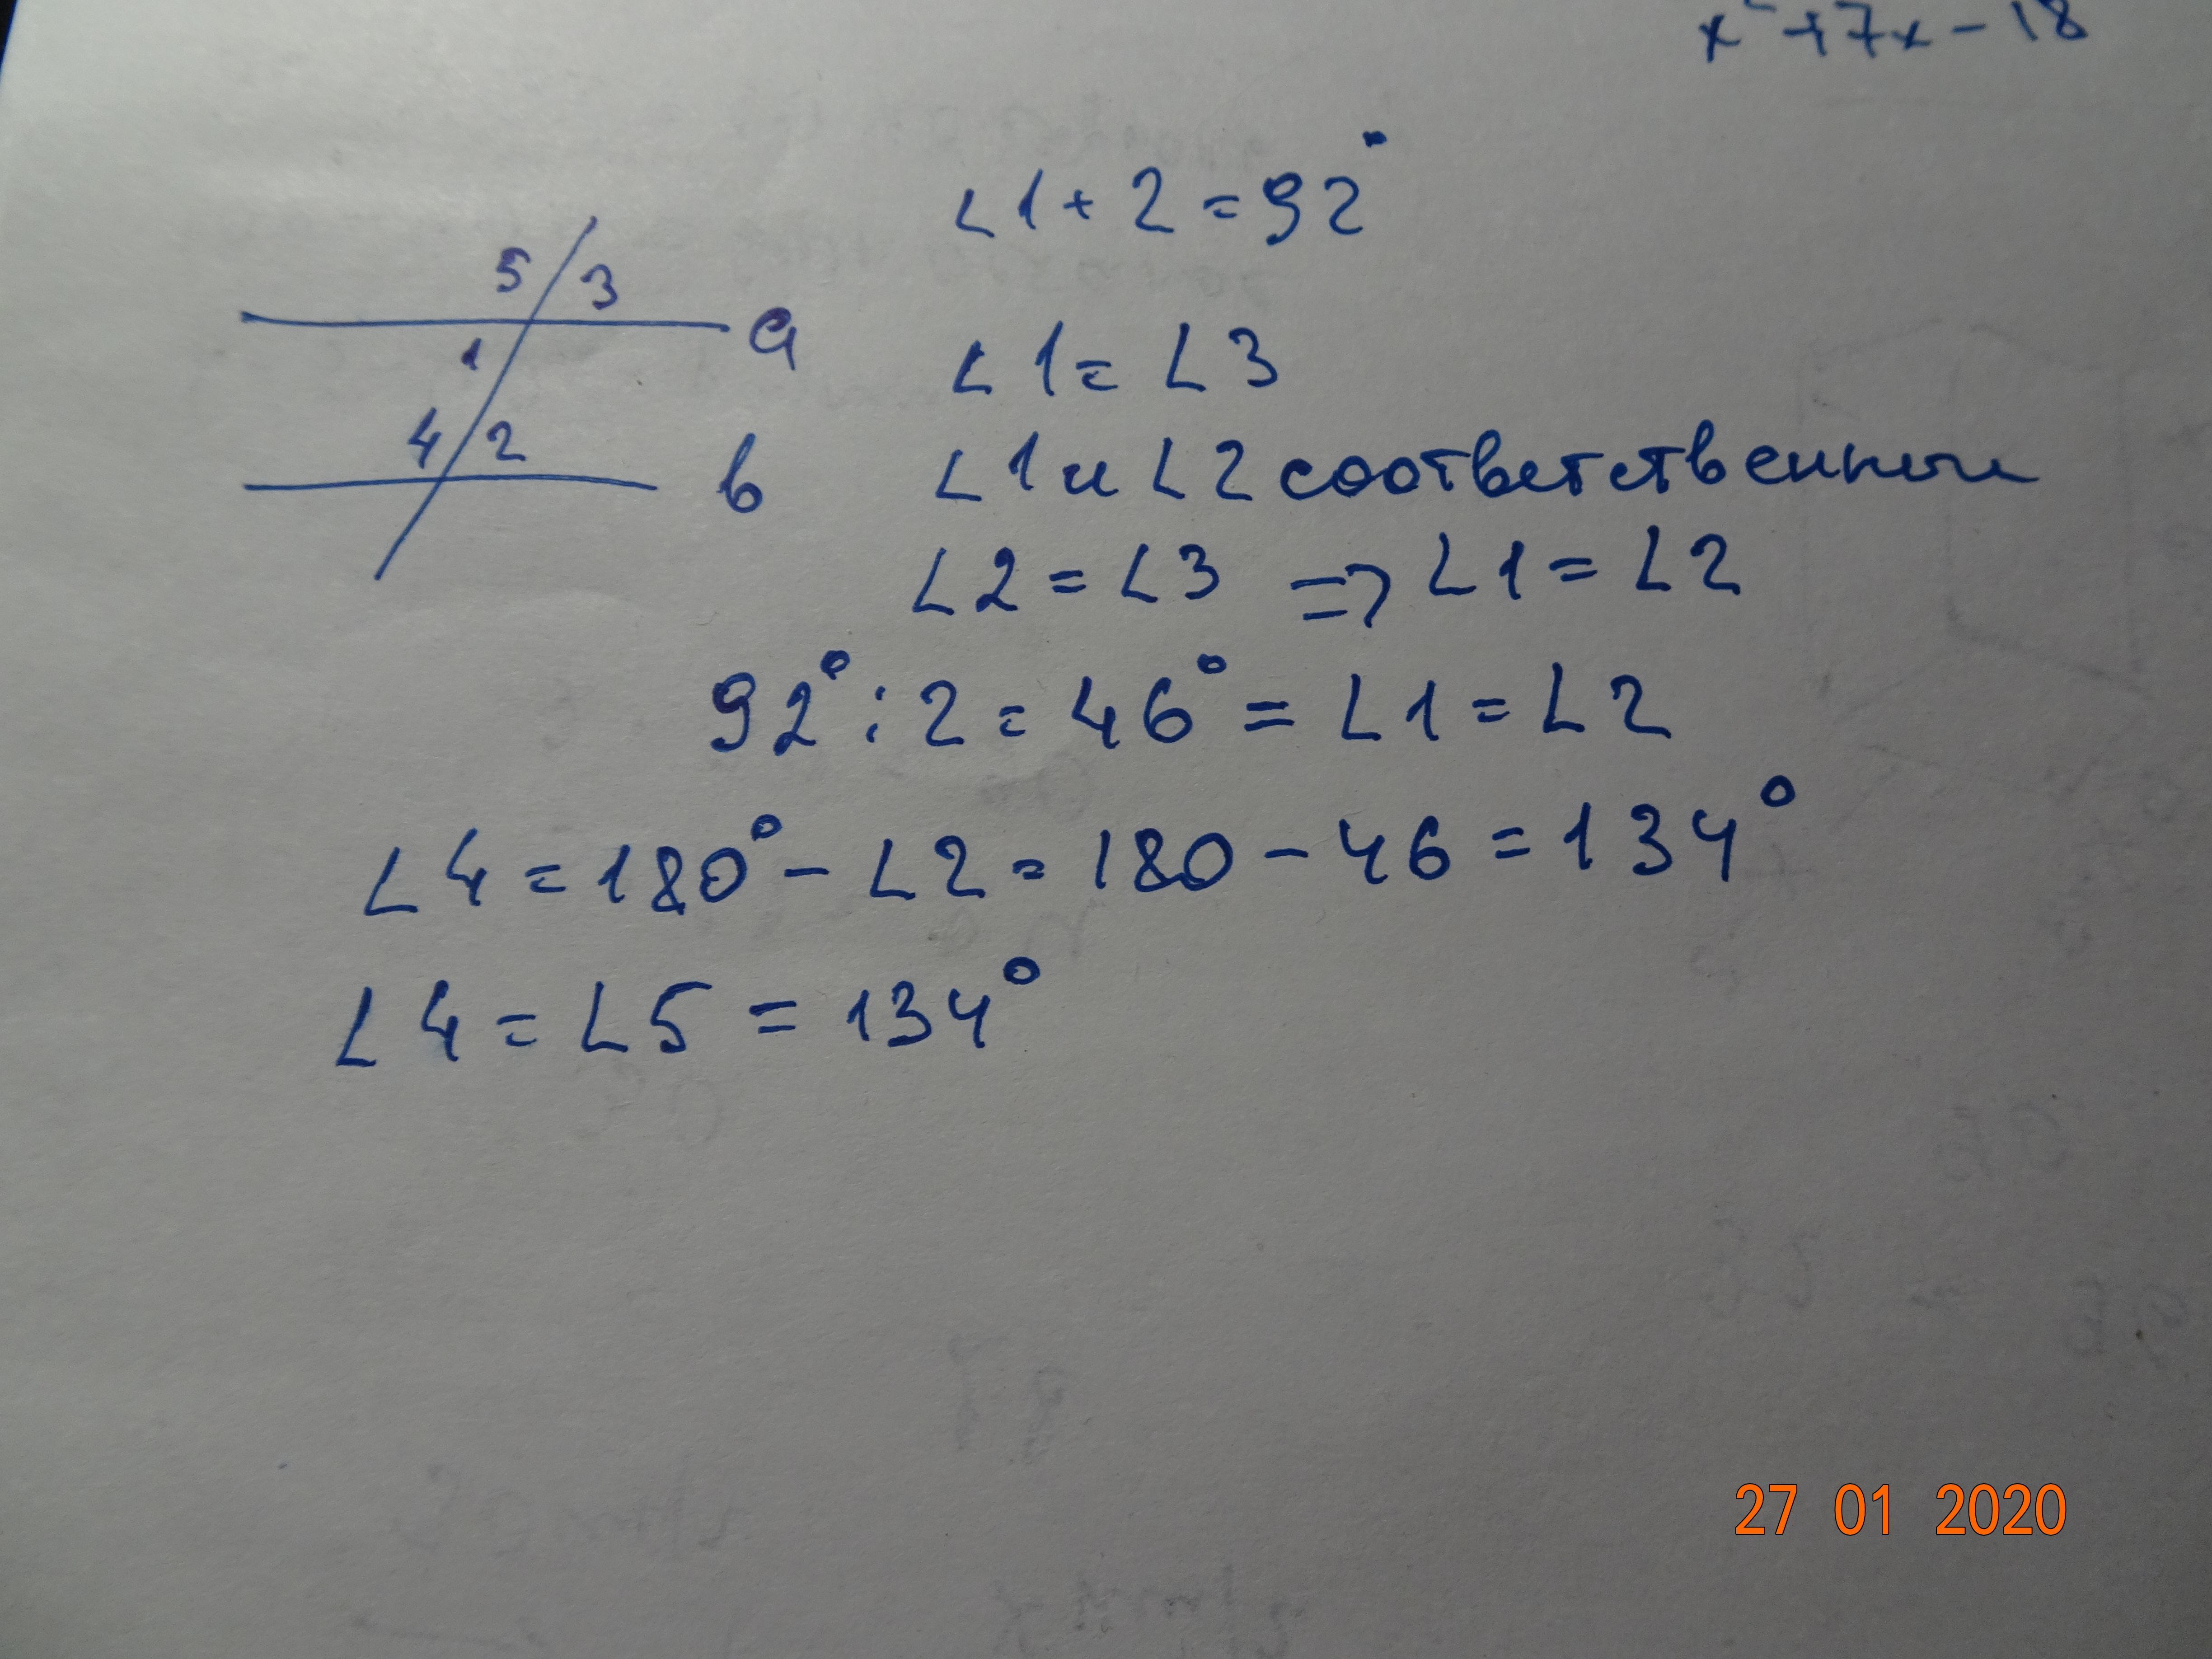 x²+7x-18
∠1+2=92°
5 3
a
1
4 2
b
∠1=∠3
∠1 и ∠2 соответственные
∠2=∠3 => ∠1=∠2
92°:2=46°=∠1=∠2
∠4=180°-∠2=180-46=134°
∠4=∠5=134°
27 01 2020